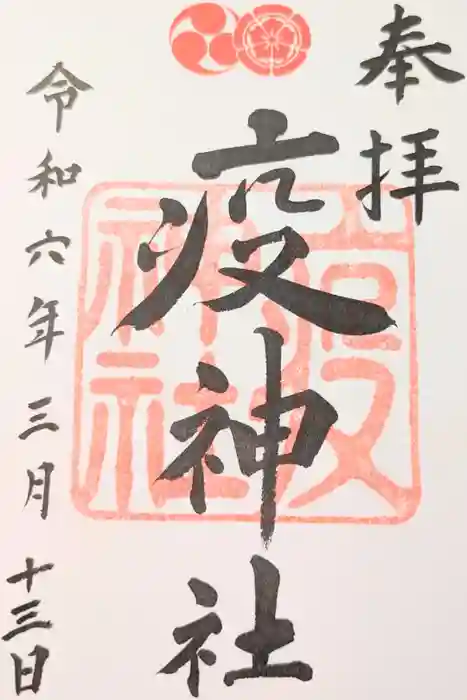 奉拝
疫神社
疫神社
令和六年三月十三日